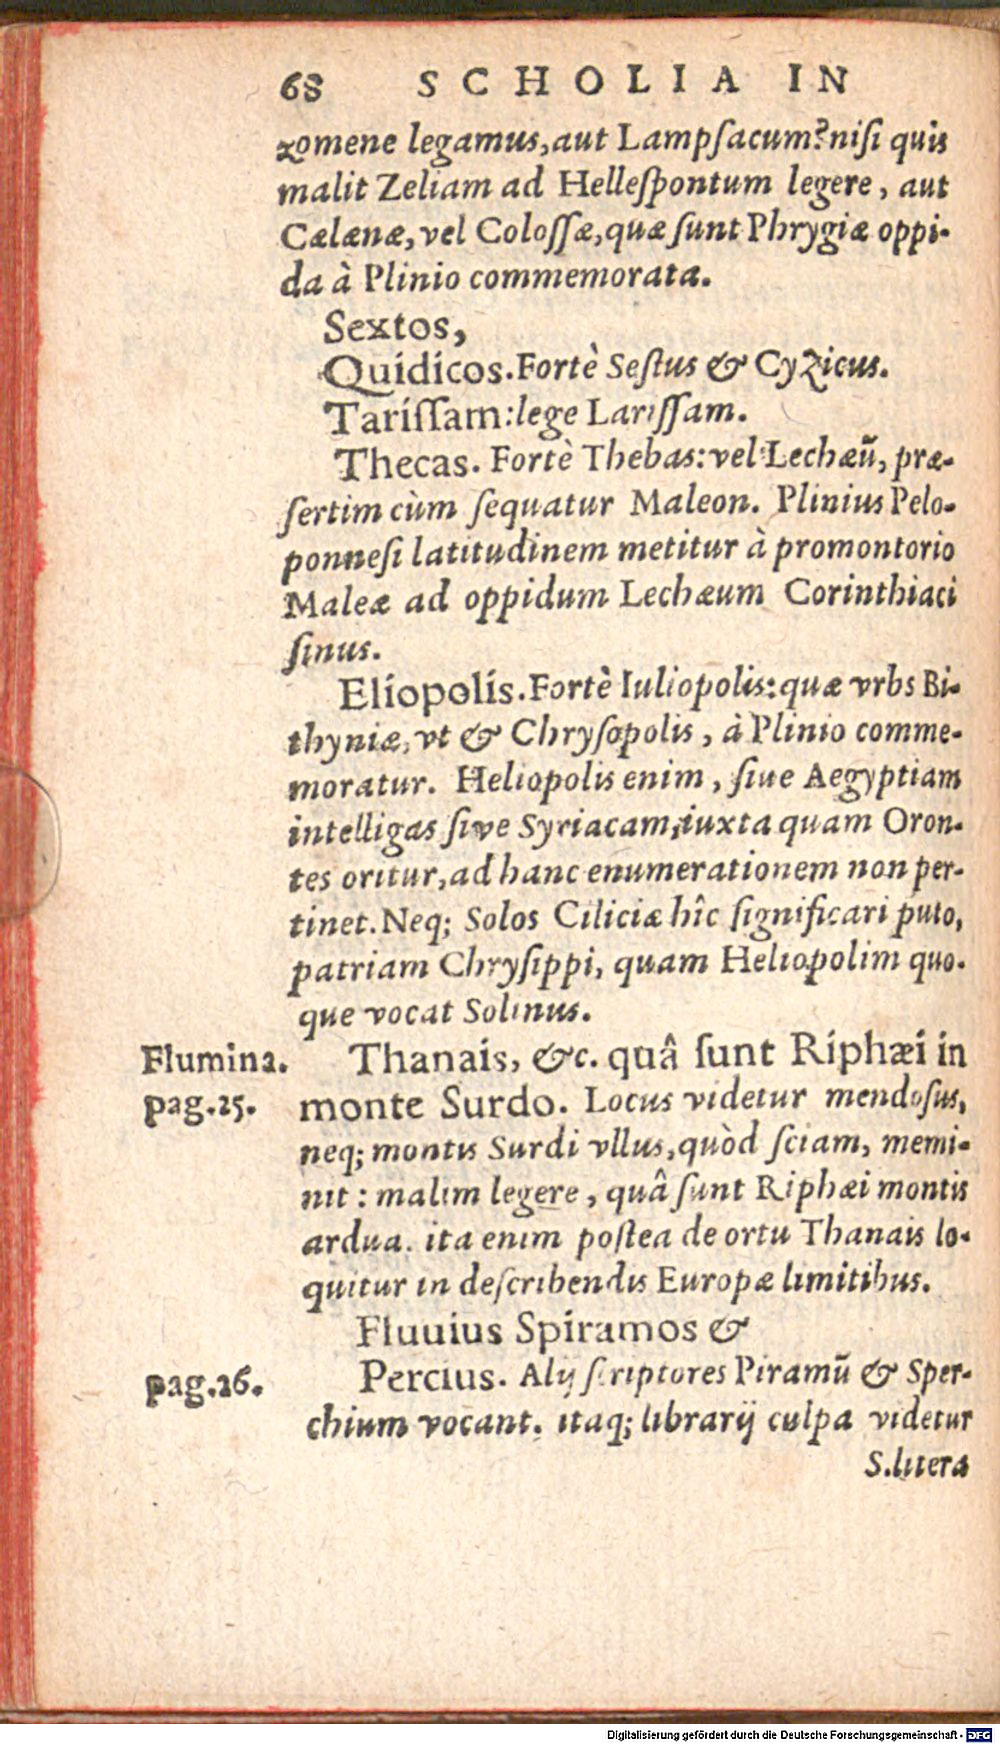 68 SCHOLIA IN
zomene legamus, aut Lampſacum? niſi quis
malit Zeliam ad Helleſpontum legere, aut
Cælænæ, vel Coloſſæ, quæ ſunt Phrygiæ oppi-
da à Plinio commemorata.
Sextos,
Quidicos. Fortè Seſtus & Cyzicus.
Tariſſam: lege Lariſſam.
Thecas. Fortè Thebas: vel Lechæũ, præ-
ſertim cùm ſequatur Maleon. Plinius Pelo-
ponneſi latitudinem metitur à promontorio
Maleæ ad oppidum Lechæum Corinthiaci
ſinus.
Eliopolis. Fortè Iuliopolis: quæ vrbs Bi-
thyniæ, vt & Chryſopolis, à Plinio comme-
moratur. Heliopolis enim, ſiue Aegyptiam
intelligas ſive Syriacam, iuxta quam Oron-
tes oritur, ad hanc enumerationem non per-
tinet. Neq; Solos Ciliciæ hîc ſignificari puto,
patriam Chryſippi, quam Heliopolim quo-
que vocat Solinus.
Flumina. pag.25.
Thanais, &c. quâ ſunt Riphæi in
monte Surdo. Locus videtur mendoſus,
neq; montis Surdi vllus, quòd ſciam, memi-
nit: malim legere, quâ ſunt Riphæi montis
ardua. ita enim poſtea de ortu Thanais lo-
quitur in deſcribendis Europæ limitibus.
Fluuius Spiramos &
pag.26.
Percius. Alij ſcriptores Piramũ & Sper-
chium vocant. itaq; librarij culpa videtur
S.litera
Digitalisierung gefördert durch die Deutsche Forschungsgemeinschaft - DFG